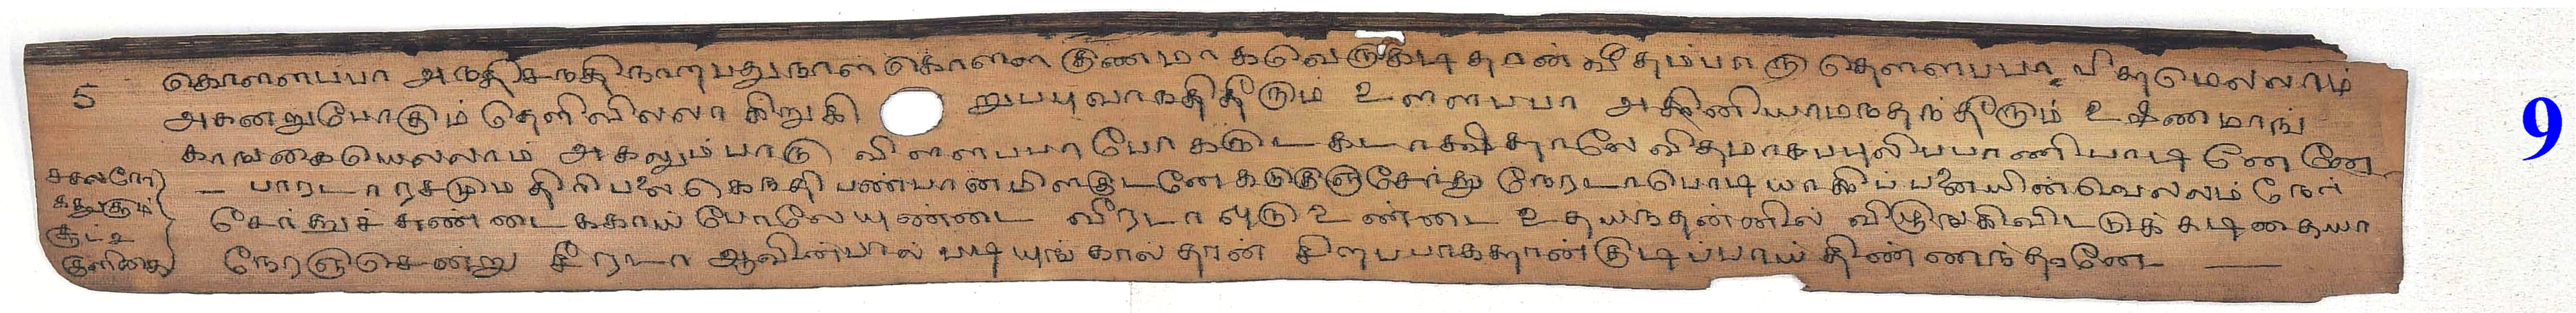 5
கொளளபபா அநதிசநதி நாறபதுநாள் கொளள குணமாகவெருகடி தான் வீதமபாரு தெளளபபா விசமெலலாம்
அகனறுபோகும் தெளிவிலலா கிறுகி றுபபுவாநதிதீரும் உளளபபா அகினியாமநதந்தீரும் உஷ்ணமாங்
காஙகையெலலாம் அகலும்பாரு விளளபபா போகருட கடாகஷிதாலே விதமாகபபுலிபபாணி பாடினேனே
— பாரடா ரசமும திரிபலை கெநதி பண்பான மிளகுடனே கடுகுஞசேர்நது நேரடா பொடியாகிப் பனையின்வெலலம் நேர்
சேர்த்துச் சுண்டைககாய் போலேயுண்டை வீரடா ஒரு உண்டை உதயநதன்னில் விழுஙகிவிடடுக் கடிகையா
நேரஞசென்று சீரடா ஆவின்பால் படியுங் கால் தான் சிறபபாகதான்குடிப்பாய் திண்ணந்தானே —
சகலரோ
கததுகும்
சூட உ
குளிகை
9